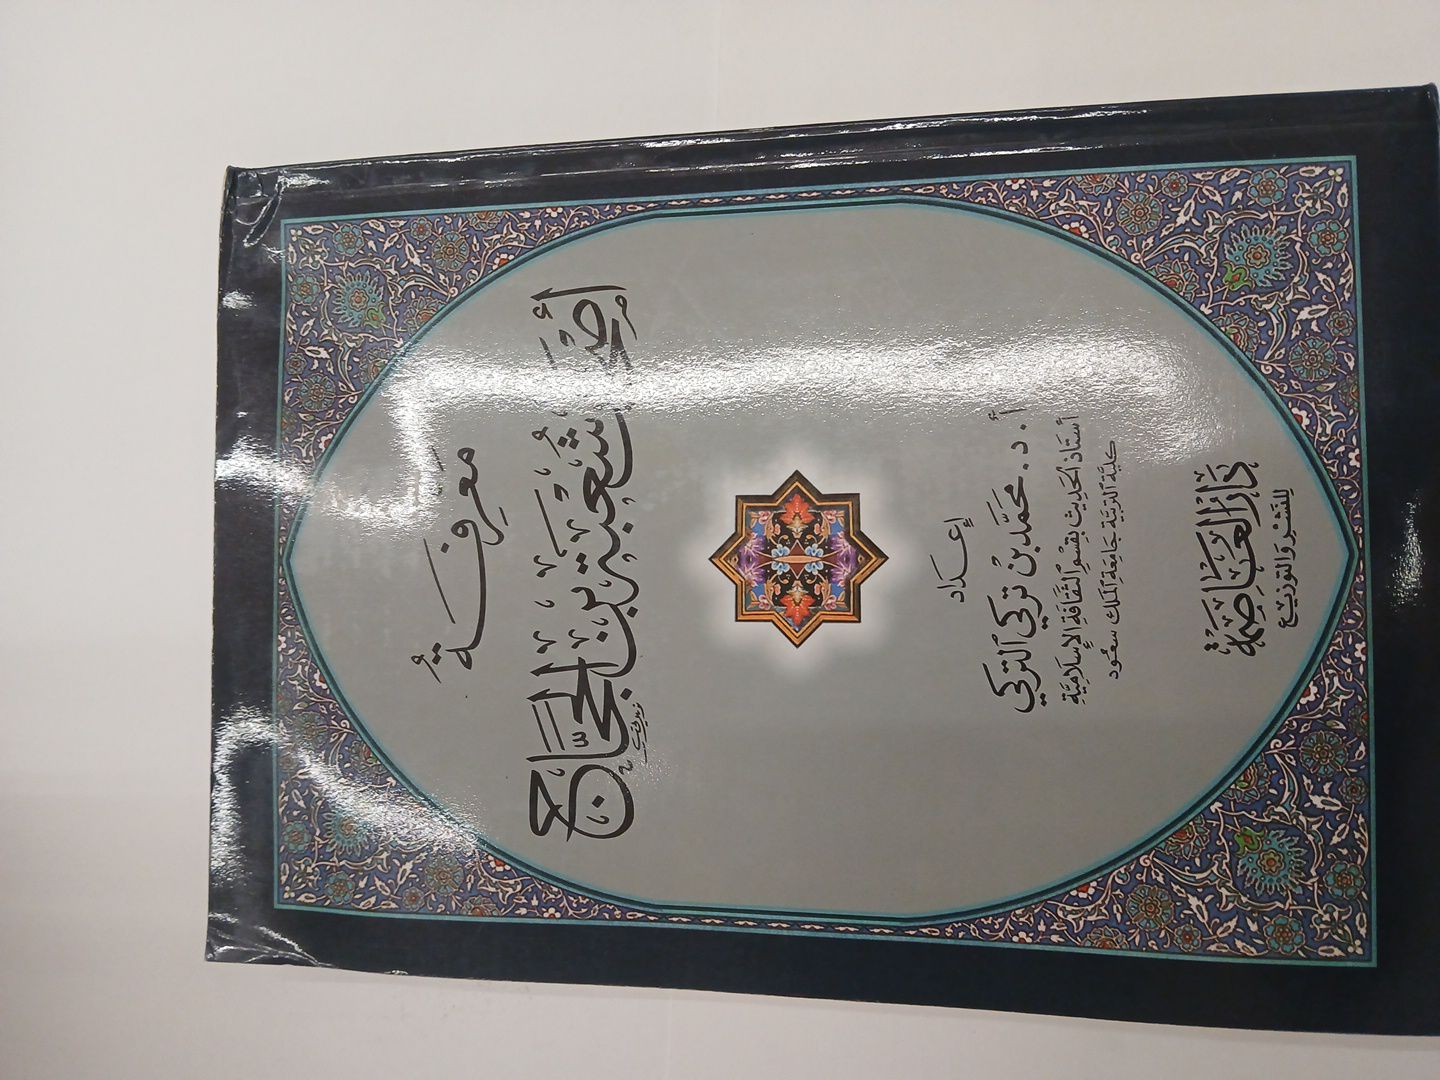 معرفة
أصحاب شعبة بن الحجاج
إعداد
أ. د. محمد بن تركي التركي
أستاذ الحديث بقسم الثقافة الإسلامية
كلية التربية جامعة الملك سعود
دار العاصمة
للنشر والتوزيع